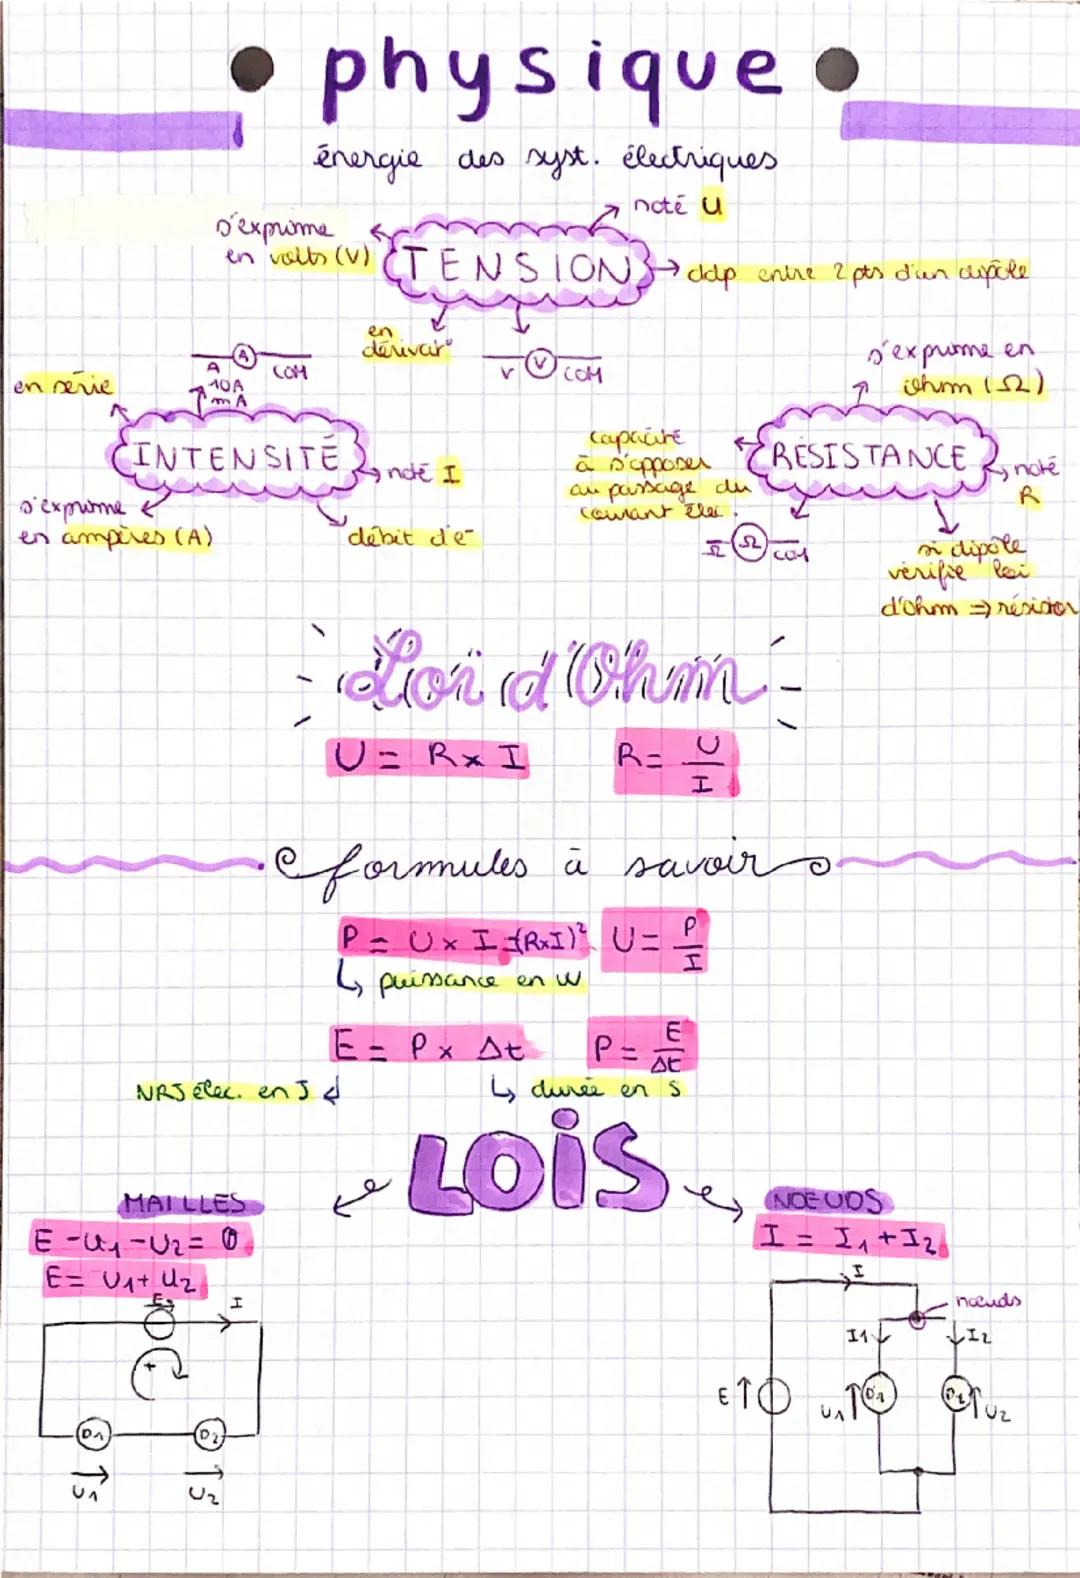 physique
énergie des syst. électriques
noté U
s'exprime
en volts (V)
TENSION
ddp entre 2 pts d'un dipôle
en
dérivat°
V V COM
A
A COM
10A
mA
en série
INTENSITÉ
noté I
s'exprime
en ampères (A)
débit d'e-
s'exprime en
ohm (Ω)
capacité
à s'opposer
au passage du
courant élec.
RÉSISTANCE
noté
R
Ω Ω COM
si dipôle
vérifie loi
d'Ohm => résistor
Loi d'Ohm
U = R x I
R = U/I
formules à savoir
P = U x I =(RxI)²
U = P/I
puissance en W
E = P x Δt
P = E/Δt
NRJ élec. en J
durée en s
LOIS
MAILLES
E - U1 - U2 = 0
E = U1 + U2
E
I
+
D1
D2
U1
U2
NOEUDS
I = I1 + I2
I
noeuds
I1
I2
E
U1
D1
D2
U2